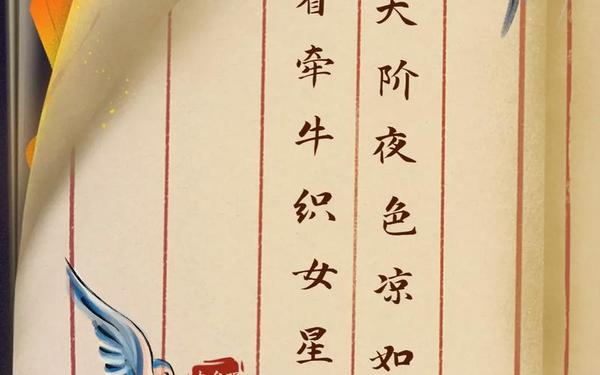 天阶夜色凉如
看牵牛织女星